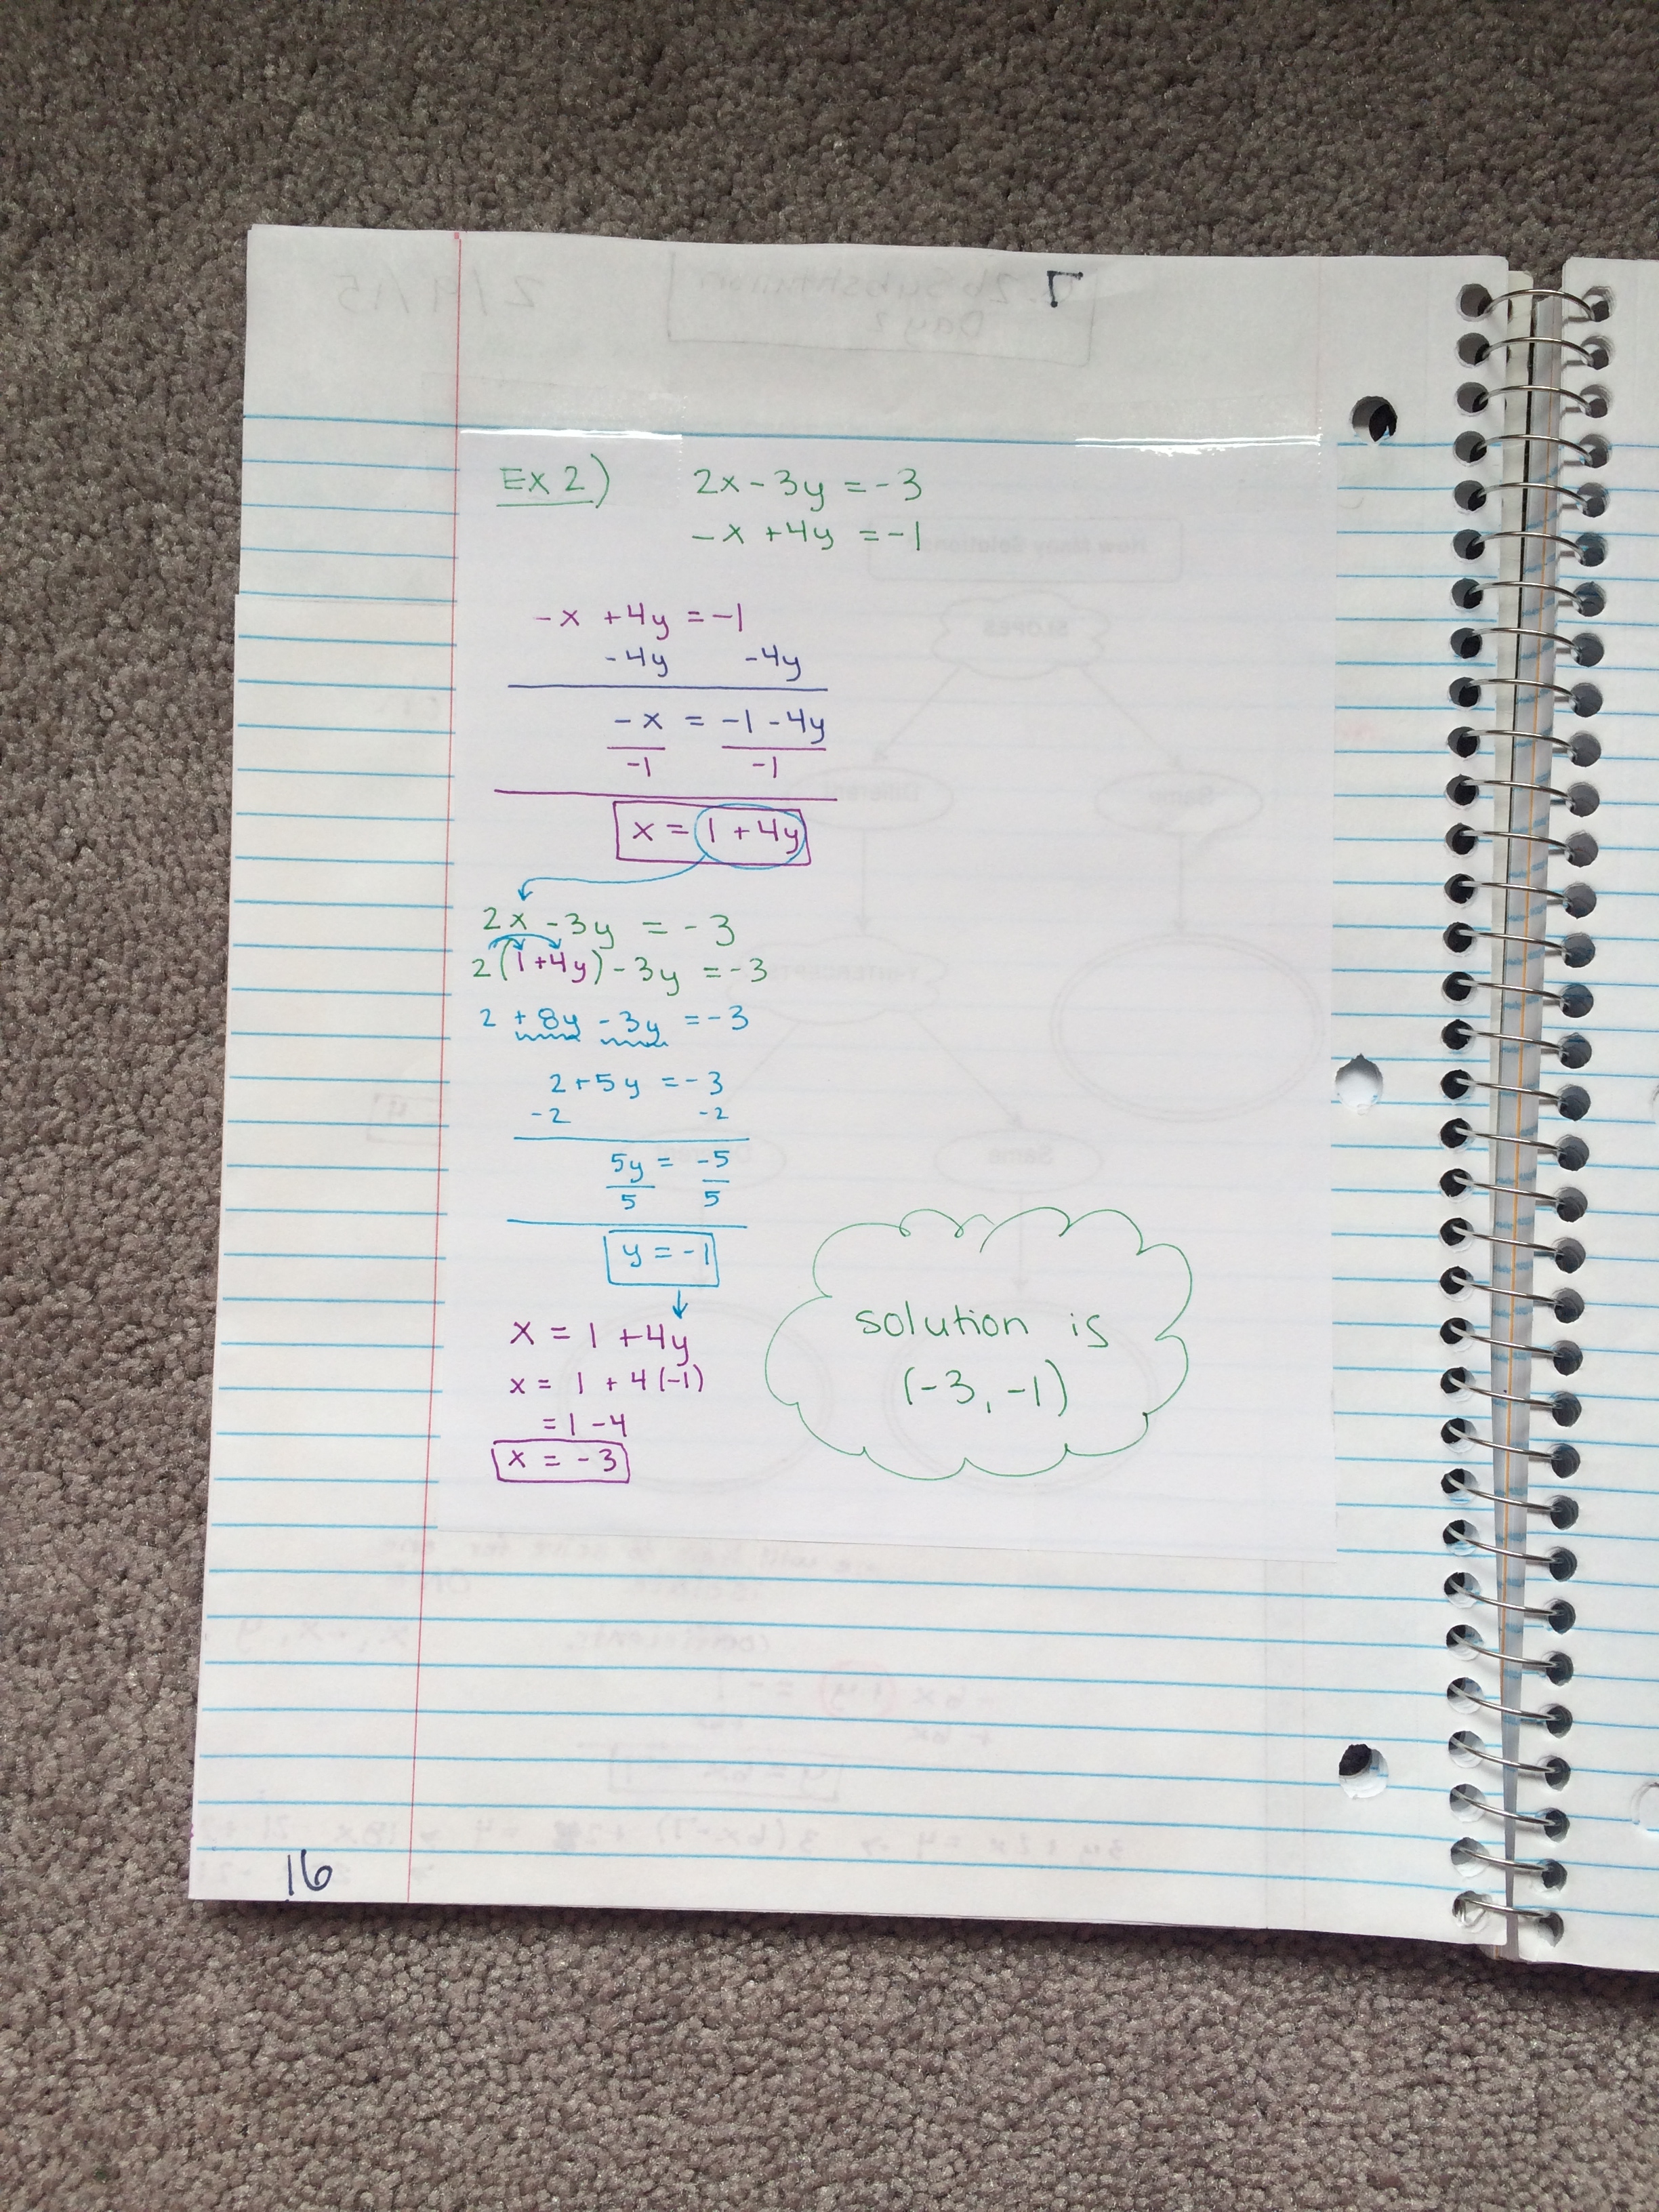 Ex 2) 2x - 3y = -3
-x + 4y = -1
-x + 4y = -1
-4y -4y
-x = -1 - 4y
-1 -1
x = 1 + 4y
2x - 3y = -3
2(1+4y) - 3y = -3
2 + 8y - 3y = -3
2 + 5y = -3
-2 -2
5y = -5
5 5
y = -1
x = 1 + 4y
x = 1 + 4(-1)
= 1 - 4
x = -3
solution is
(-3, -1)
16